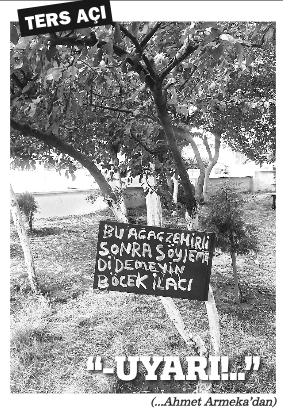 TERS AÇI
BU AĞAÇ ZEHİRLİ
SONRA SÖYLEME
Dİ DEMEYİN
BÖCEK İLACI
“-UYARI!..”
(...Ahmet Armeka’dan)